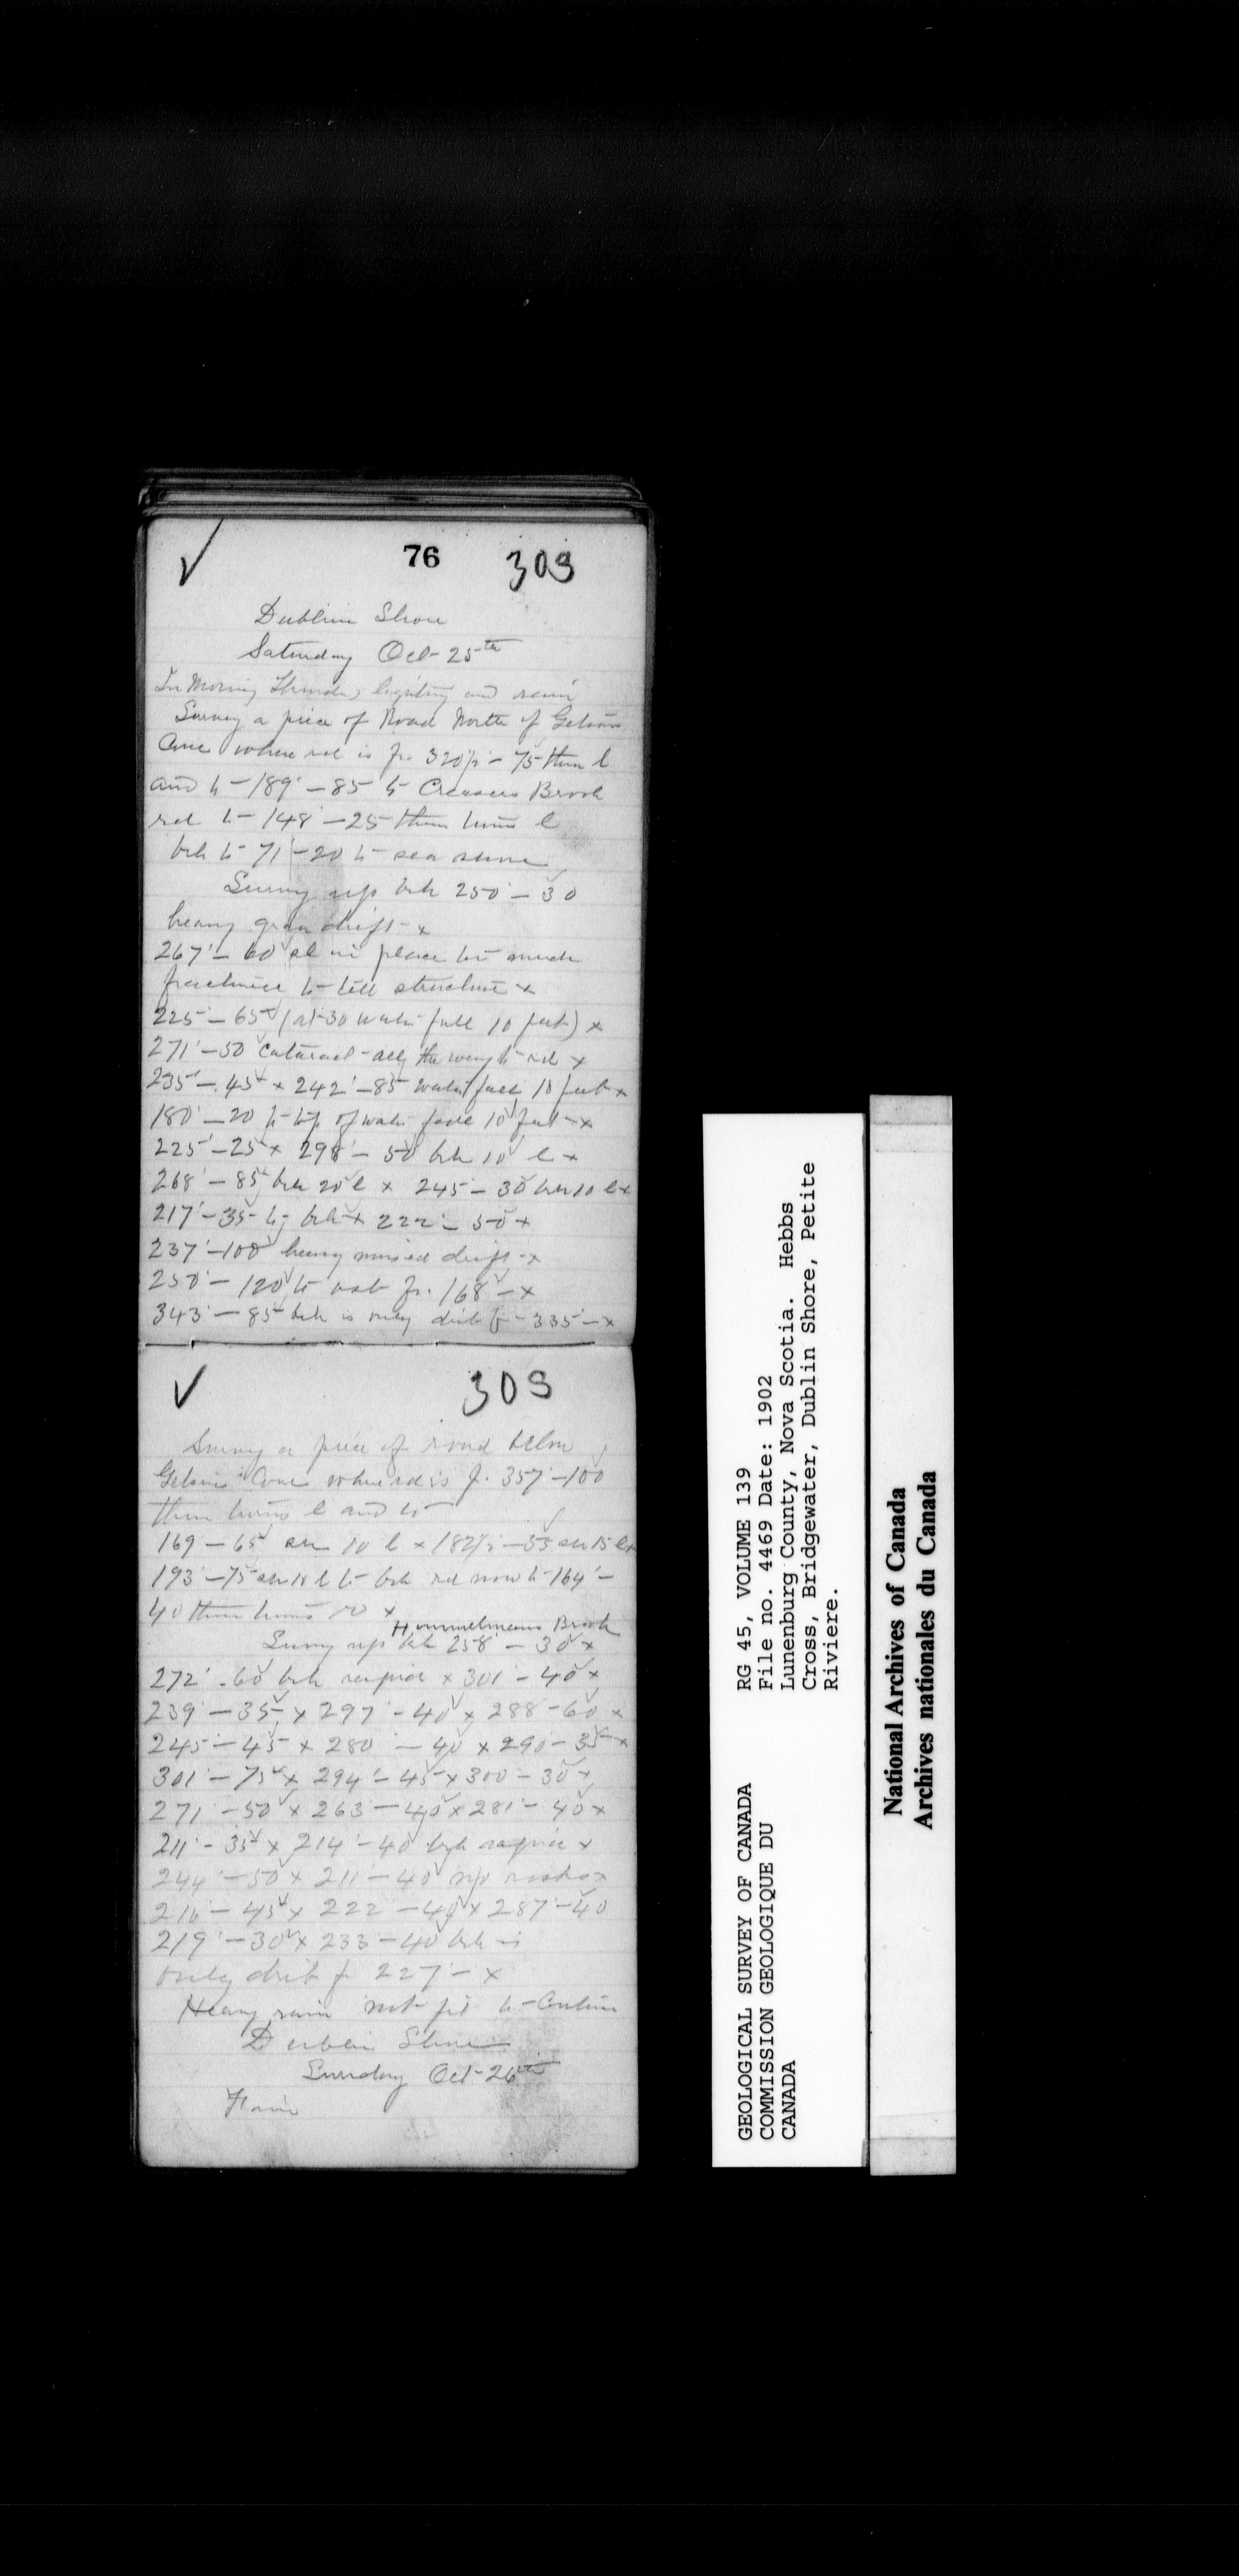 76 303
Dublin Shore
Saturday Oct 25th
In Morning Thunder, lighting and rain
Survey a piece of Road North of Getsons
Cove where rd is fr. 320½ - 75 then l
and to - 189 - 85 to Creasers Brook
rd to - 148 - 25 then turns l
brk to 71 - 20 to sea shore
Survey up brk 250 - 30
heavy gran drift - x
267 - 60 sl in place but much
fractured to tell structure x
225 - 65 (at 30 water fall 10 feet) x
271 - 50 Cataract all the way to rd x
235 - 45 x 242 - 85 water fall 10 feet x
180 - 20 to top of water fall 10 feet x
225 - 25 x 298 - 50 brk 10 l x
268 - 85 brk 20 l x 245 - 30 brk 10 l x
217 - 35 to brk x 222 - 50 x
237 - 100 heavy mixed drift - x
250 - 120 to fr. 168 - x
343 - 85 brk is only fr - 335 - x
303
Survey a piece of road below
Getsons Cove where rd is fr. 357 - 100
then turns l and to
169 - 65 10 l x 182½ - 55 15 l x
193 - 75 10 l to brk rd now to 164 -
40 then turns r x
Himmelmans Brook
Survey up brk 258 - 30 x
272 - 60 brk rapid x 301 - 40 x
239 - 35 x 297 - 40 x 288 - 60 x
245 - 45 x 280 - 40 x 290 - 35 x
301 - 75 x 294 - 45 x 300 - 30 x
271 - 50 x 263 - 40 x 281 - 40 x
211 - 35 x 214 - 40 brk rapid x
244 - 50 x 211 - 40 no rocks x
210 - 45 x 222 - 40 x 287 - 40
219 - 30 x 233 - 40 brk is
only fr 227 - x
Heavy rain not fit to Continue
Dublin Shore
Sunday Oct 26th
Fair
GEOLOGICAL SURVEY OF CANADA
COMMISSION GEOLOGIQUE DU
CANADA
RG 45, VOLUME 139
File no. 4469 Date: 1902
Lunenburg County, Nova Scotia. Hebbs
Cross, Bridgewater, Dublin Shore, Petite
Riviere.
National Archives of Canada
Archives nationales du Canada